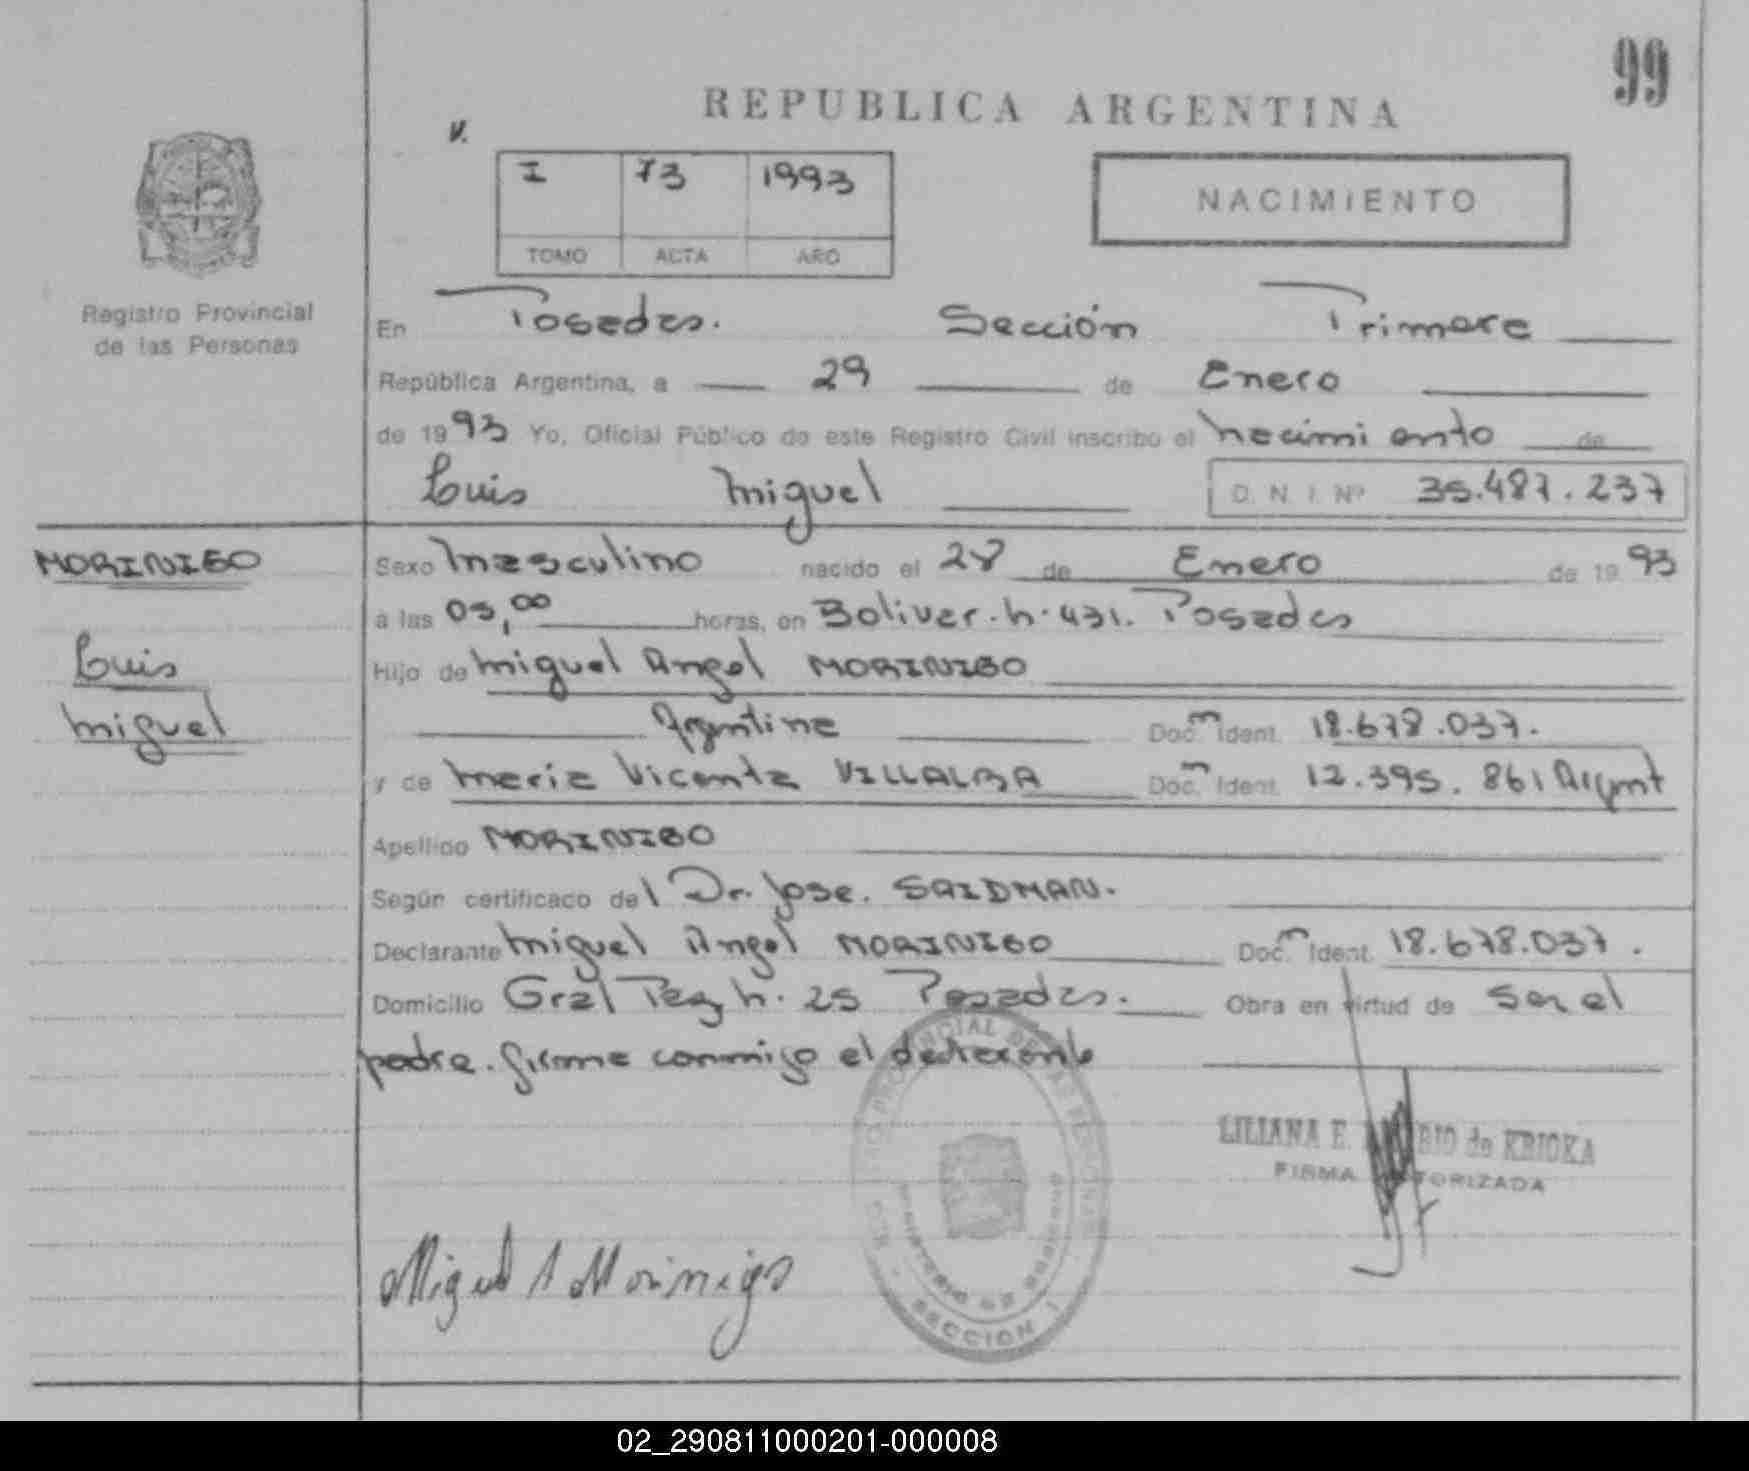 99
REPUBLICA ARGENTINA
v.
I 73 1993
TOMO ACTA AÑO
NACIMIENTO
Registro Provincial
de las Personas
En Posadas. Sección Primera
República Argentina, a 29 de Enero
de 1993 Yo, Oficial Público de este Registro Civil inscribo el nacimiento de
Luis Miguel D. N. I. Nº 35.487.237
MORINIGO
Luis
Miguel
Sexo Masculino nacido el 28 de Enero de 1993
a las 05,00 horas, en Bolivar. n. 431. Posadas
Hijo de Miguel Angel MORINIGO
Argentina Doc. Ident. 18.678.037.
y de Maria Vicenta VILLALBA Doc. Ident. 12.395.861 Argent
Apellido MORINIGO
Según certificado del Dr. Jose. SAIDMAN.
Declarante Miguel Angel MORINIGO Doc. Ident. 18.678.037.
Domicilio Gral Paz n. 25 Posadas. Obra en virtud de ser el
padre. firma conmigo el declarante
LILIANA E. de KRIOKA
FIRMA AUTORIZADA
Miguel A Morinigo
SECCION 1
02_290811000201-000008